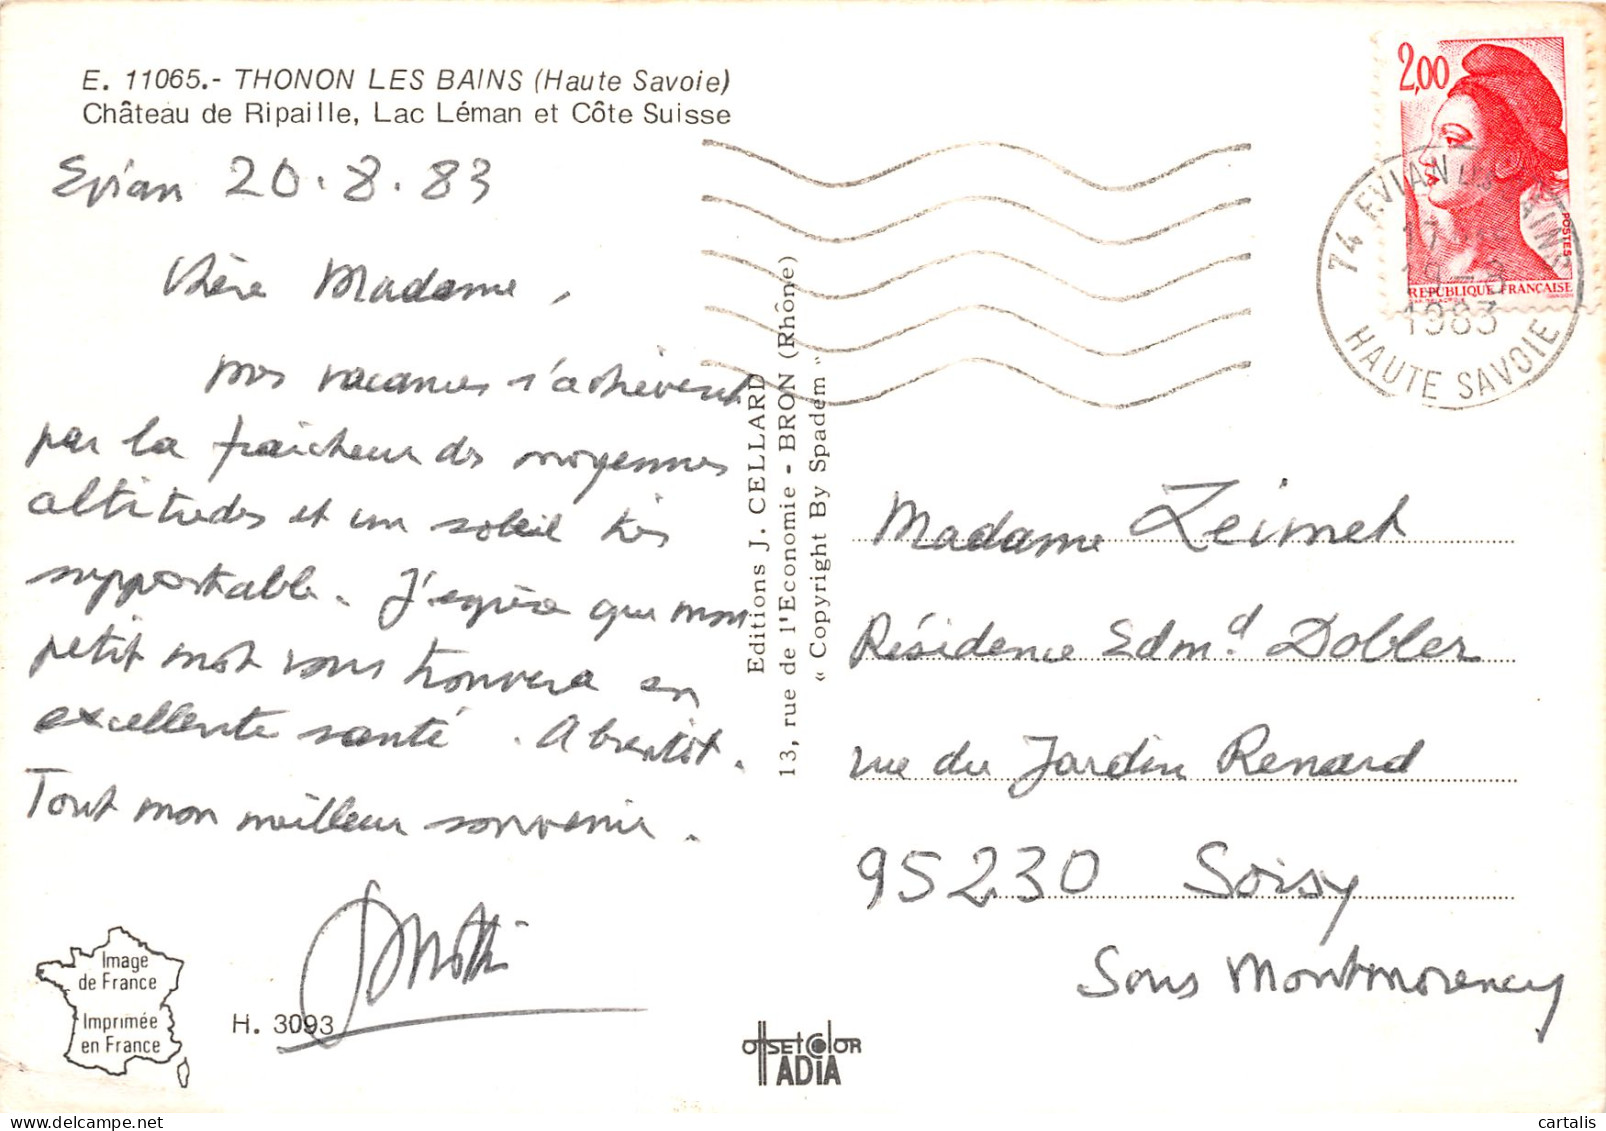 E. 11065.- THONON LES BAINS (Haute Savoie)
Château de Ripaille, Lac Léman et Côte Suisse
Evian 20.8.83
Chère Madame,
mes vacances s'achèvent
par la fraîcheur des moyennes
altitudes et un soleil très
supportable. J'espère que mon
petit mot vous trouvera en
excellente santé. A bientôt.
Tout mon meilleur souvenir.
Image
de France
Imprimée
en France
H. 3093
Editions J. CELLARD
13, rue de l'Economie - BRON (Rhône)
« Copyright By Spadem »
OFFSET COLOR
ADIA
2,00
POSTES
REPUBLIQUE FRANÇAISE
74 EVIAN LES BAINS
1983
HAUTE SAVOIE
Madame Zeimet
Résidence Edmd Dobler
rue du Jardin Renard
95230 Soisy
Sous Montmorency
cartalis